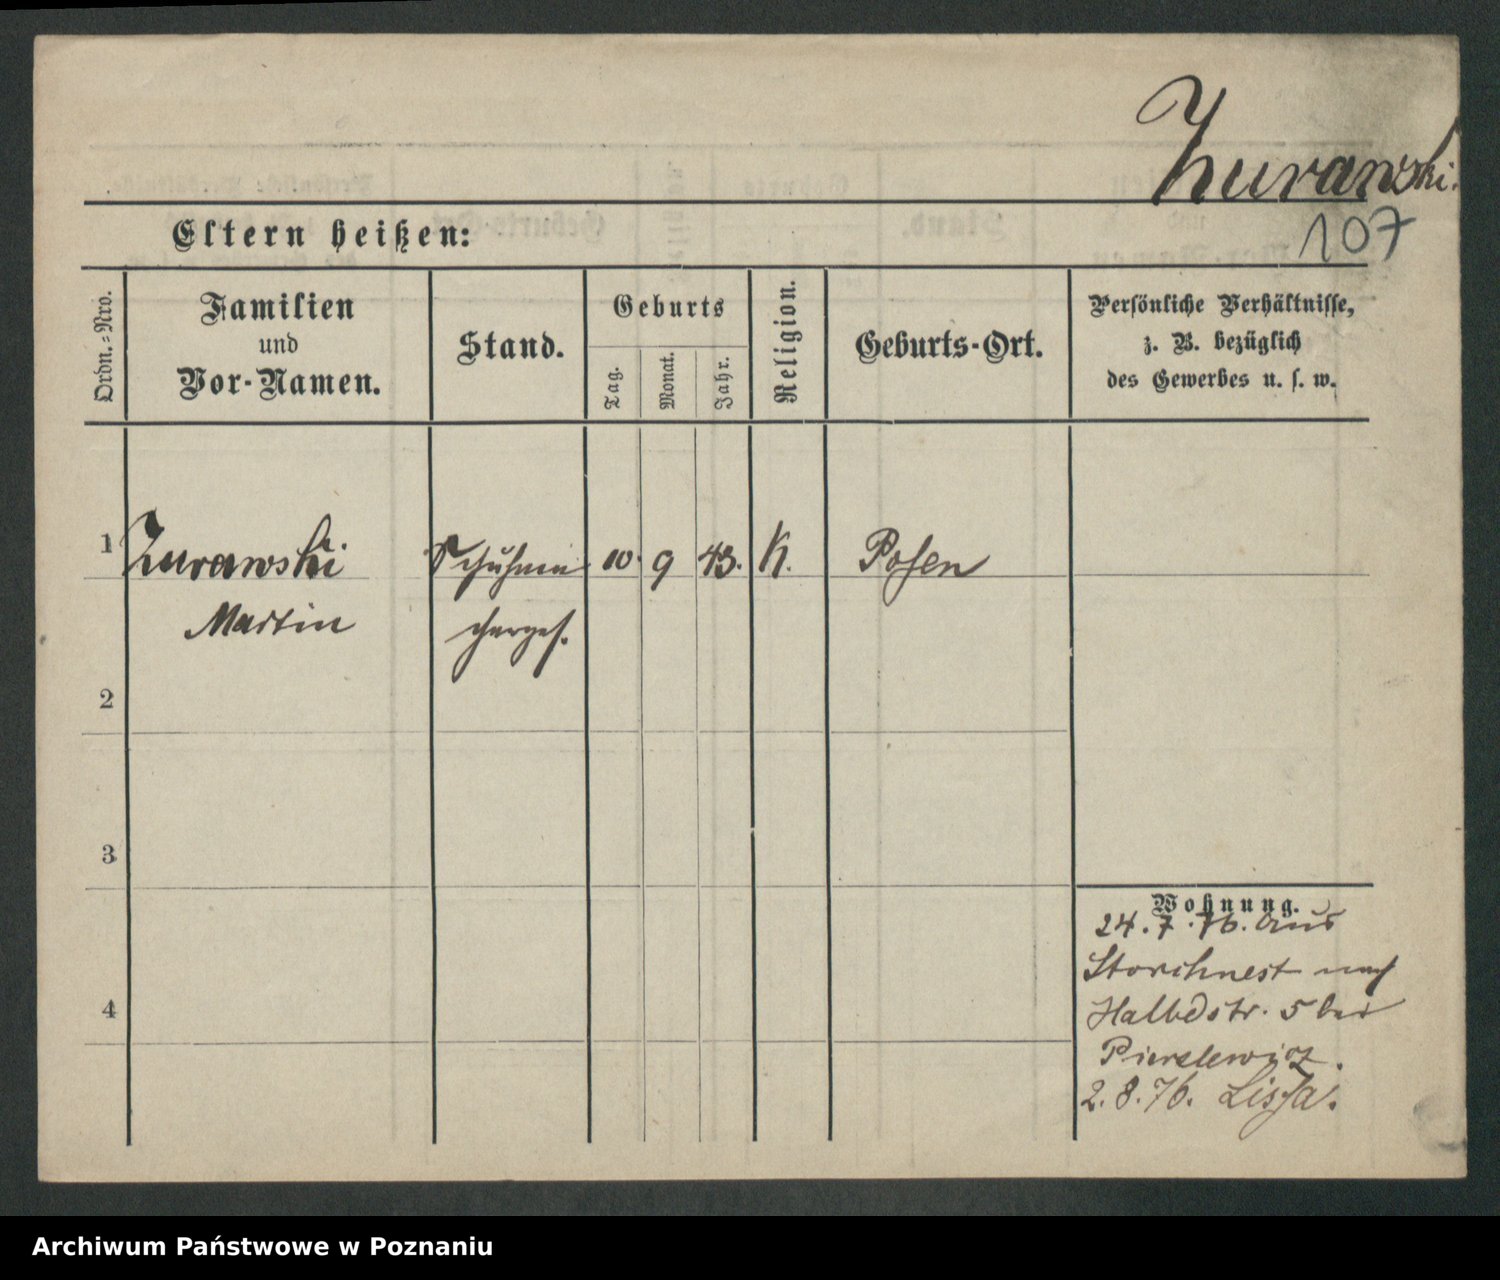 Zurawski.
107
Eltern heißen:
Ordn.-Nro.
Familien
und
Vor-Namen.
Stand.
Geburts
Tag.
Monat.
Jahr.
Religion.
Geburts-Ort.
Persönliche Verhältnisse,
z. B. bezüglich
des Gewerbes u. s. w.
1 Zurawski Schuhma 10. 9 43. K. Posen
Martin chergef.
2
3
Wohnung.
24. 7. 76. aus
Storchnest nach
4
Halbdstr. 5 bei
2. 8. 76. Lissa.
Archiwum Państwowe w Poznaniu